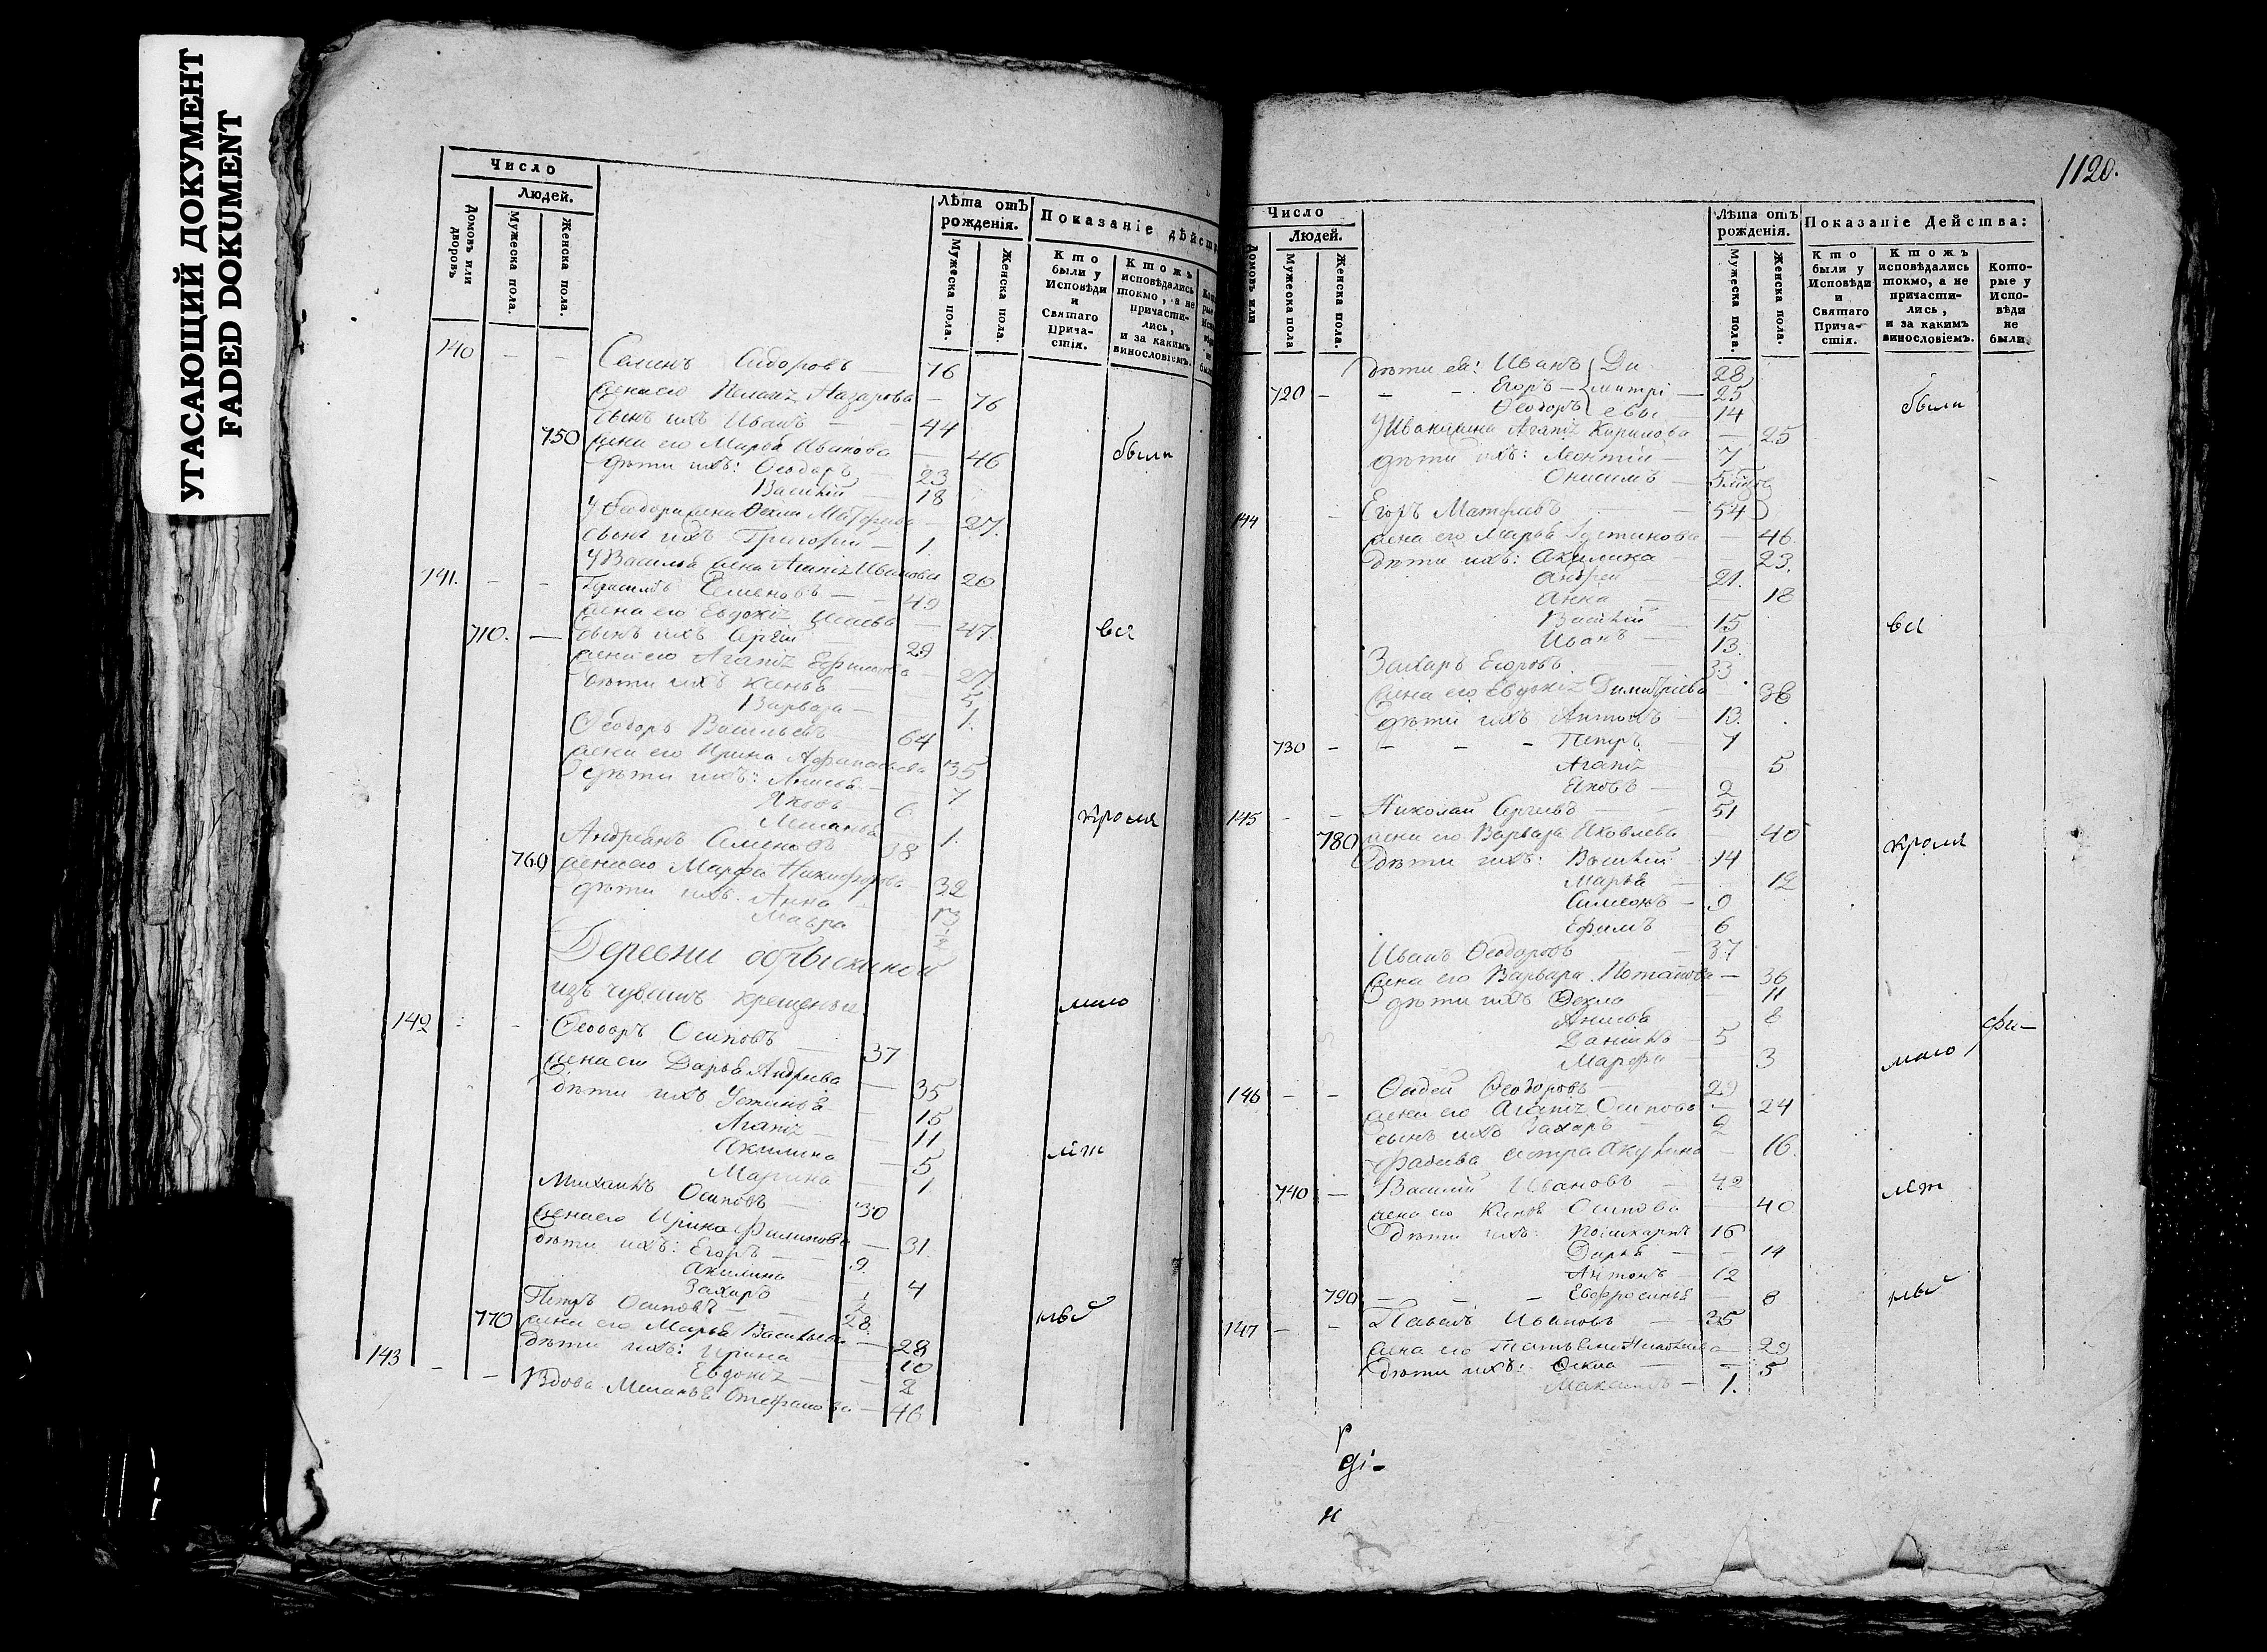 УГАСАЮЩИЙ ДОКУМЕНТ
FADED DOKUMENT
Число
Людей.
Домовъ или дворовъ
Мужеска пола.
Женска пола.
Лѣта отъ рожденія.
Мужеска пола.
Женска пола.
Показаніе дѣйст
Кто были у Исповѣди и Святаго Прича-стія.
Ктожъ исповѣдались токмо, а не причасти-лись, и за какимъ винословіемъ.
140 — — Семенъ Сидоровъ — 76
жена его Назарова — 76
сынъ ихъ Иванъ — 44
750 жена его Марѳа Иванова — 46 были
дѣти ихъ: Ѳеодоръ 23
Василій — 18
У Ѳеодора жена Ѳекла — 27.
сынъ ихъ Григорий — 1.
У Василья жена Агапія Иванова 20
141. — — — 49
жена его Евдокія — 47. вси
710. — сынъ ихъ Сергій — 29
жена его Агапія Ефимова — 27
дѣти ихъ Ксенья — 5
Варвара — 1.
Ѳеодоръ Васильевъ — 64
жена его Ирина Афанасьева 35
дѣти ихъ: — 7
Яковъ — 6 кроме
Меланья — 1.
Андреянъ Семеновъ 38
760 жена его Марфа Никифорова — 32
дѣти ихъ. Анна 13
Мавра 1/2
Деревни
изъ чувашъ крещеные. мало
142 - - Ѳеодоръ Осиповъ — 37
жена его Дарья Андреева — 35
дѣти ихъ Устинья — 15
Агапія — 11
Акилина — 5 лѣт
Марина — 1
Михаилъ Осиповъ — 30
жена его Ирина Филипова — 31.
дѣти ихъ: Егоръ — 9.
Акилина — 4
Захаръ — 1/2
Петръ Осиповъ — 28
770 жена его Марья Васильева — 28
дѣти ихъ: Ирина 10
Евдокія — 2
143 - - Вдова Меланья Стефанова — 46
1120.
Число
Людей.
Домовъ или
Мужеска пола
Женска пола.
Лѣта отъ рожденія.
Мужеска пола.
Женска пола.
Показаніе Действа:
Кто были у Исповѣди и Святаго Прича-стія.
Ктожъ исповѣдались токмо, а не причасти-лись, и за какимъ винословіемъ.
Кото-рые у Испо-вѣди не были.
дѣти ея: Иванъ Ди 28
720 - - - Егоръ — митрі — 25
Ѳеодоръ евы 14 были
У Ивана жена Агапія Кирилова — 25
дѣти ихъ: Леонтій — 7
Онисимъ —
144 - Егоръ Матѳеевъ — 54
жена его Марья Устинова — 46
дѣти ихъ: Акулина — 23.
Андрей — 21.
Анна — 18
Василій — 15 вси
Иванъ — 13.
Захаръ Егоровъ. — 33
жена его Евдокія Димитріева 38
дѣти ихъ Антонъ — 13.
730 - - - Петръ — 7
Агапія 5
Яковъ — 2
145 - - Николай Сергеевъ — 51
780 жена его Варвара Яковлева — 40
дѣти ихъ: Василій — 14 кроме
Марья — 12
Симеонъ — 9
Ефимъ — 6
Иванъ Ѳеодоровъ — 37
жена его Варвара Потапова — 36
дѣти ихъ Ѳекла — 11
Анисья 8
Данилъ — 5
Марфа — 3 мало
146 - - Ѳадей Ѳеодоровъ — 29
жена его Агапія Осипова — 24
сынъ ихъ Захаръ — 2
сестра Акулина — 16.
740 — Василій Ивановъ — 42 лѣт
жена его Осипова — 40
дѣти ихъ: 16
Дарья — 14
Антонъ — 12
790 — — — Евфросинья — 8
147 — - Павелъ Ивановъ — 35
жена его Татьяна — 29
дѣти ихъ: Ѳекла — 5
Максимъ — 1.